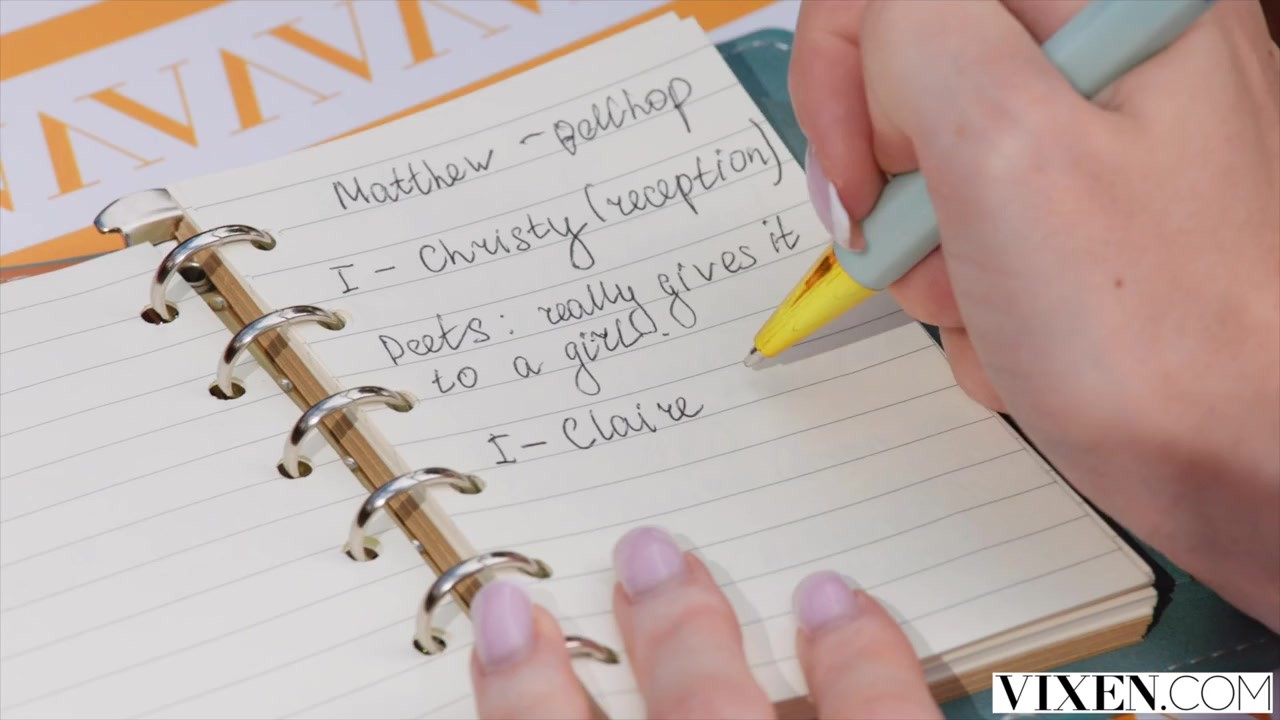 Matthew - Bellhop
I - Christy (reception)
Deets: really gives it
to a girl.
I - Claire
VIXEN.COM